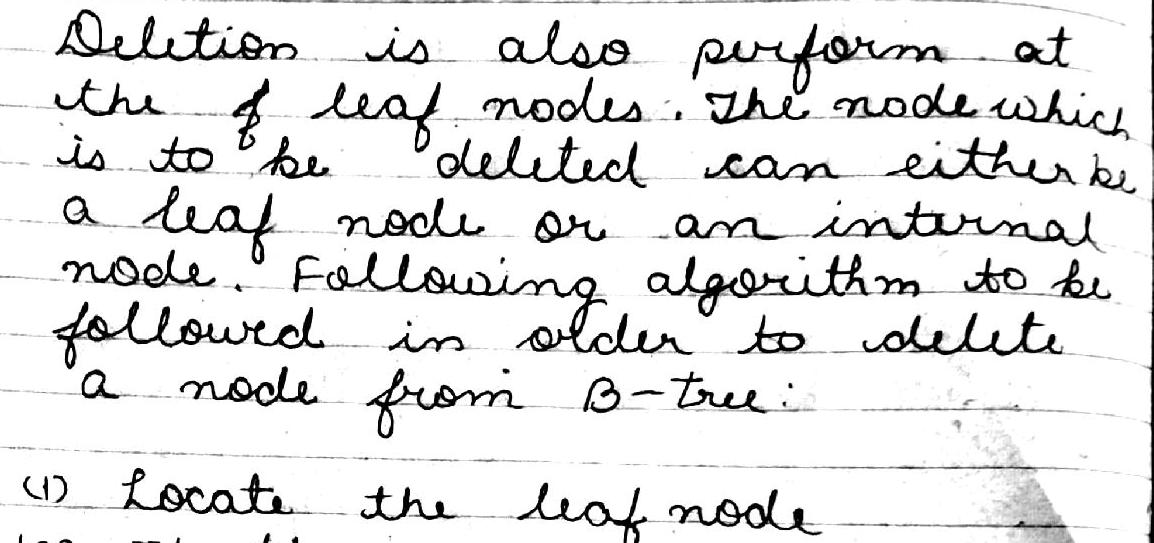 Deletion is also perform at
the leaf nodes. The node which
is to be deleted can either be
a leaf node or an internal
node. Following algorithm to be
followed in older to delete
a node from B-tree:
(1) Locate the leaf node